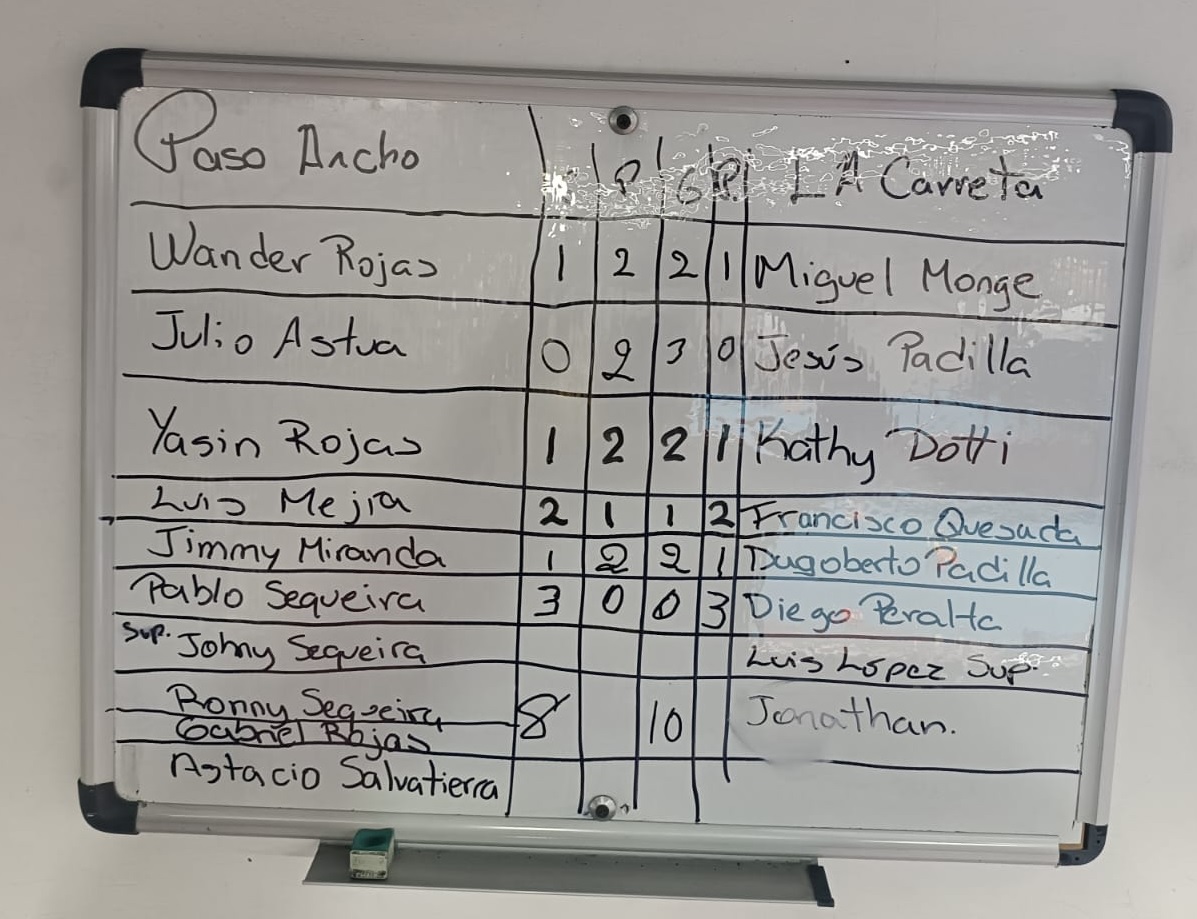 Paso Ancho P G P. LA Carreta
Wander Rojas 1 2 2 1 Miguel Monge
Julio Astua 0 2 3 0 Jesús Padilla
Yasin Rojas 1 2 2 1 Kathy Dotti
Luis Mejia 2 1 1 2 Francisco Quesada
Jimmy Miranda 1 2 2 1 Dagoberto Padilla
Pablo Sequeira 3 0 0 3 Diego Peralta
Sup. Johny Sequeira Luis López Sup.
Ronny Sequeira 8 10 Jonathan.
Gabriel Rojas
Astacio Salvatierra